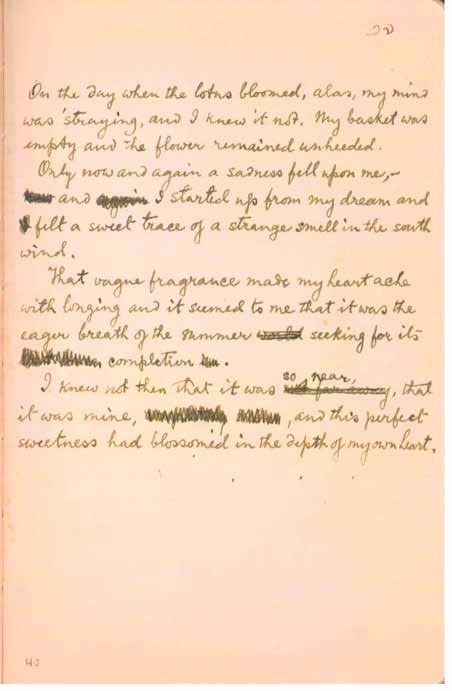 20
On the day when the lotus bloomed, alas, my mind
was straying, and I knew it not. My basket was
empty and the flower remained unheeded.
Only now and again a sadness fell upon me,-
and again I started up from my dream and
felt a sweet trace of a strange smell in the south
wind.
That vague fragrance made my heart ache
with longing and it seemed to me that it was the
eager breath of the summer world seeking for its
completion.
so near,
I knew not then that it was not far away, that
it was mine, , and this perfect
sweetness had blossomed in the depth of my own heart.
40